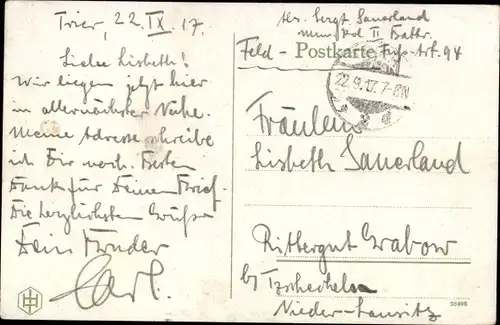 Trier, 22. IX. 17.
Liebe Lisbeth!
Wir liegen jetzt hier
in allernächster Nähe.
Meine Adresse schreibe
ich Dir noch. Besten
Dank für Deinen Brief.
Die herzlichsten Grüße
Dein Bruder
Carl.
Abs. Sergt. Sauerland
II Battr.
Fuß-Art. 94
Feld-
Postkarte
22.9.17. 7-8N
Fräulein
Lisbeth Sauerland
Rittergut Grabow
bei
Nieder-Lausitz